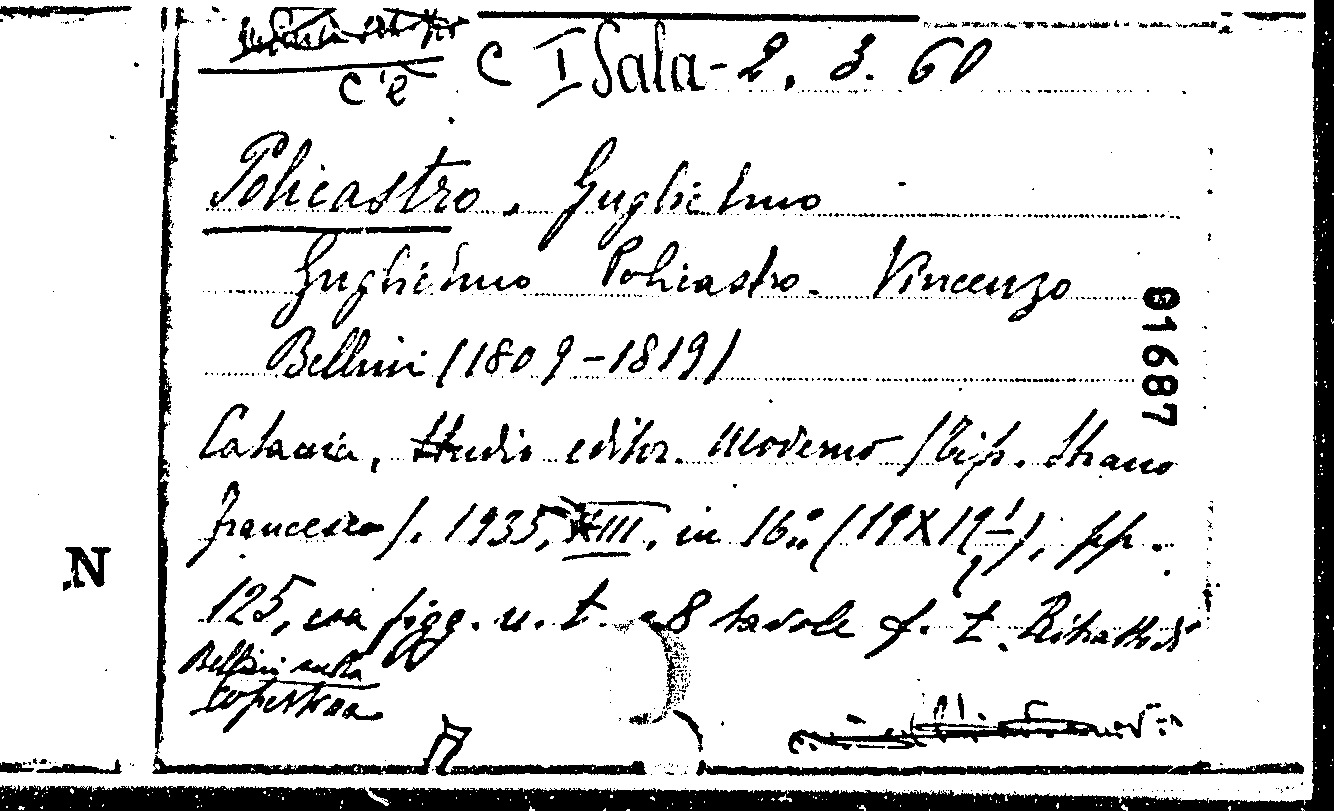 c'è C I Sala - 2. 3. 60
Policastro, Guglielmo
Guglielmo Policastro. Vincenzo
Bellini (1809-1819)
81687
Catania, Studio editor. Moderno (Tip. Strano
Francesco). 1935, XIII, in 16° (19X19½), pp.
N
125, con figg. n. t. e 8 tavole f. t. Ritratto di
Bellini sulla
copertina